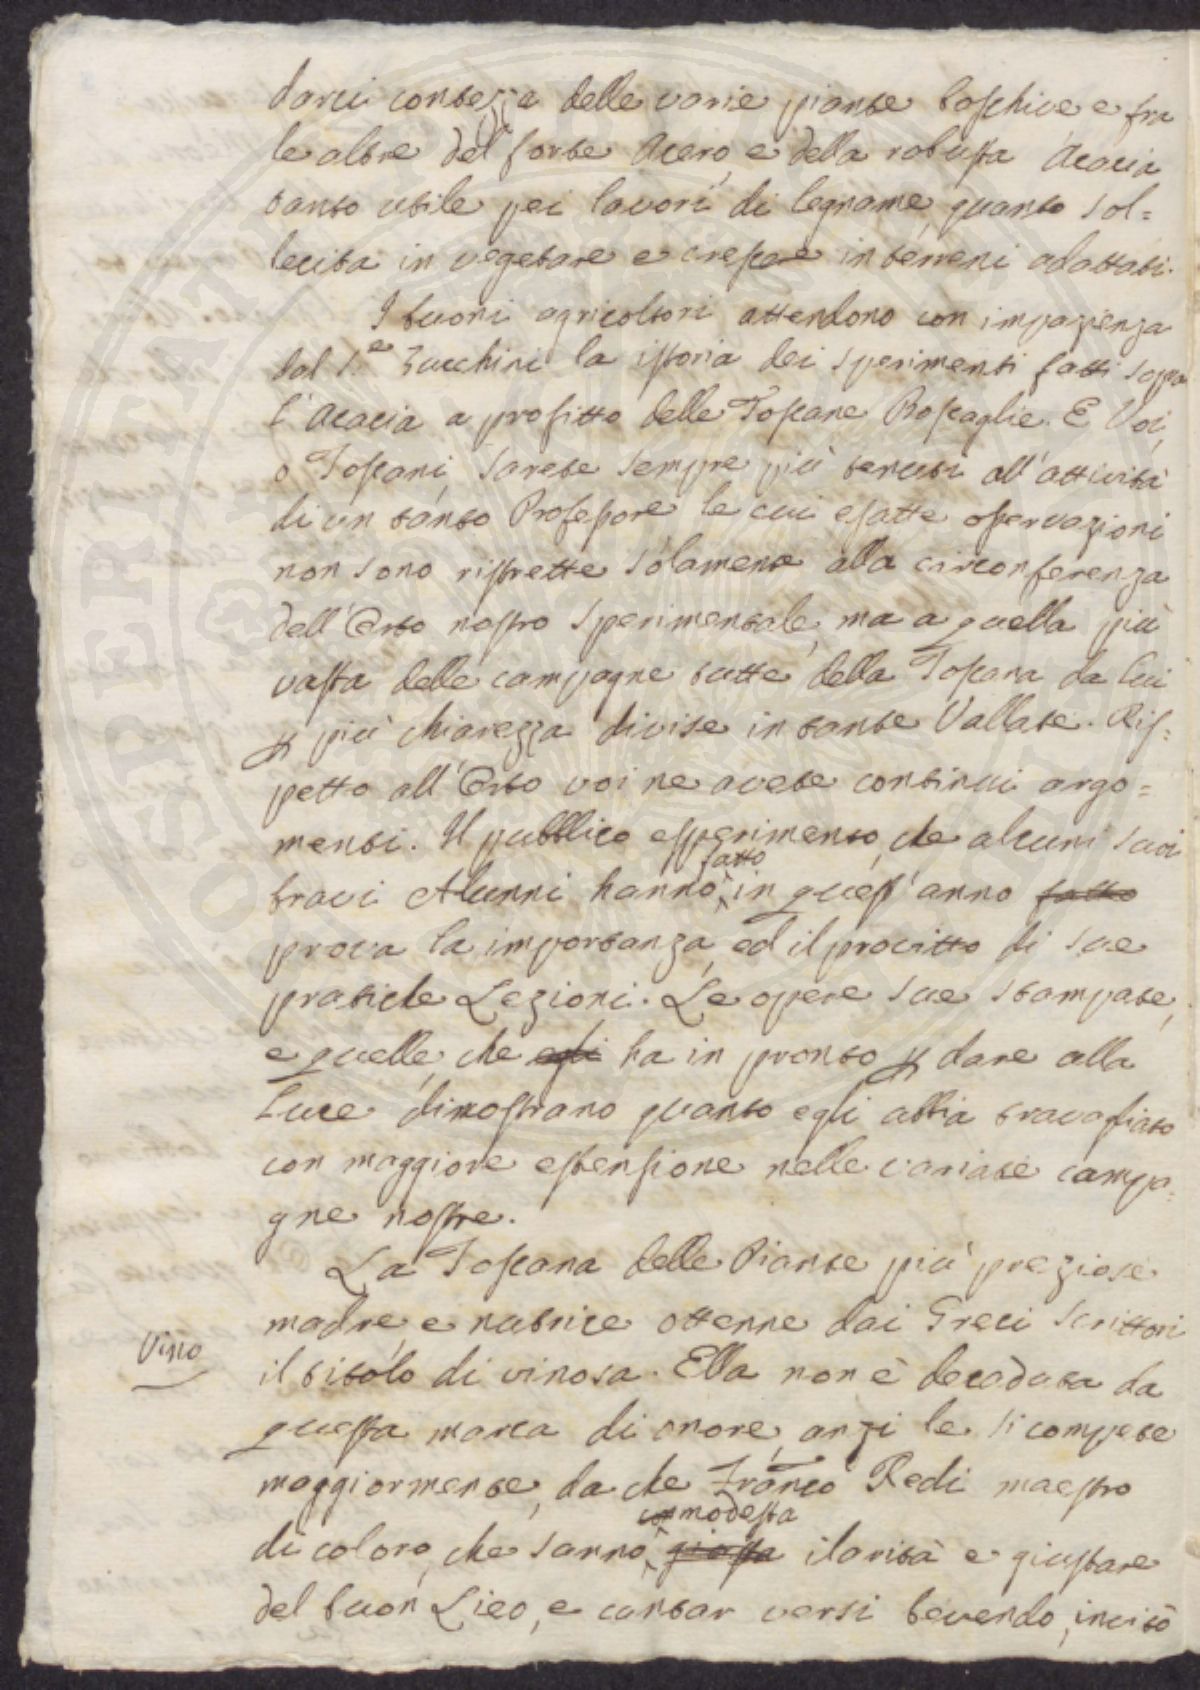 darci contezza delle varie piante boschive e fra
le altre del forte Acero, e della robusta Acacia
tanto utile pei lavori di legname quanto sol=
lecita in vegetare e crescere in terreni adattati.
I buoni agricoltori attendono con impazienza
dal S.e Zucchini la istoria dei sperimenti fatti sopra
l'Acacia a profitto delle Toscane Boscaglie. E Voi,
o Toscani, sarete sempre più tenuti all'attività
di un tanto Professore le cui esatte osservazioni
non sono ristrette solamente alla circonferenza
dell'Orto nostro sperimentale, ma a quella più
vasta delle campagne tutte della Toscana da lui
p più chiarezza divise in tante Vallate. Ris=
petto all'Orto voi ne avete continui argo=
menti. Il pubblico esperimento, che alcuni suoi
fatto
bravi Alunni hanno in quest'anno fatto
prova la importanza, ed il profitto di sue
pratiche Lezioni. Le opere sue stampate,
e quelle, che egli ha in pronto p dare alla
Luce dimostrano quanto egli abbia travagliato
con maggiore estensione nelle variate campa=
gne nostre.
La Toscana delle Piante più preziose
madre, e nutrice ottenne dai Greci Scrittori
Vino
il titolo di vinosa. Ella non è decaduta da
questa marca di onore, anzi le si compete
maggiormente, da che Franco Redi maestro
modesta
di coloro, che sanno giusta ilarità e giustare
del buon Lieo, e cantar versi bevendo, invitò